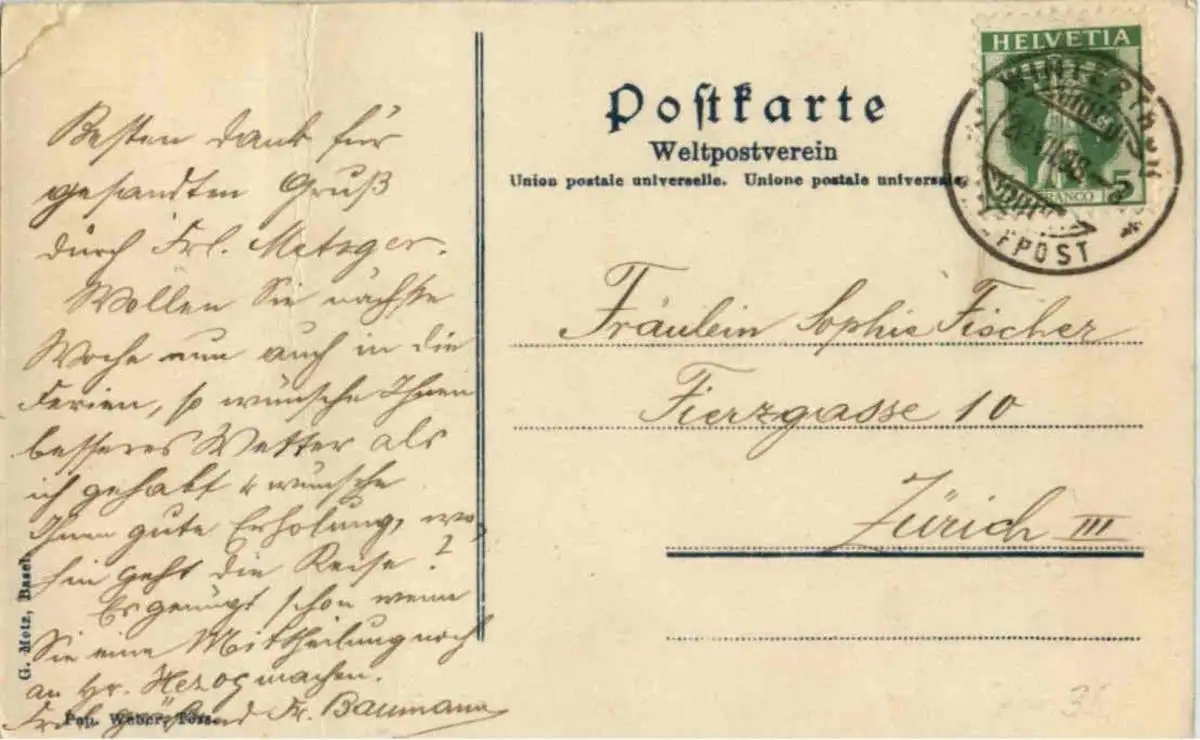 Besten Dank für
gesandten Gruß
durch Frl. Metzger.
Wollen Sie nächste
Woche nun auch in die
Ferien, so wünsche Ihnen
besseres Wetter als
ich gehabt & wünsche
Ihnen gute Erholung, wo-
hin geht die Reise?
Es genügt schon wenn
Sie eine Mittheilung noch
an Hr. Herzog machen.
Frdl. grüßend Fr. Baumann
G. Metz, Basel.
Pap. Weber, Töss.
Postkarte
Weltpostverein
Union postale universelle. Unione postale universale
HELVETIA
FRANCO 5
WINTERTHUR
FPOST
Fräulein Sophie Fischer
Fierzgasse 10
Zürich III